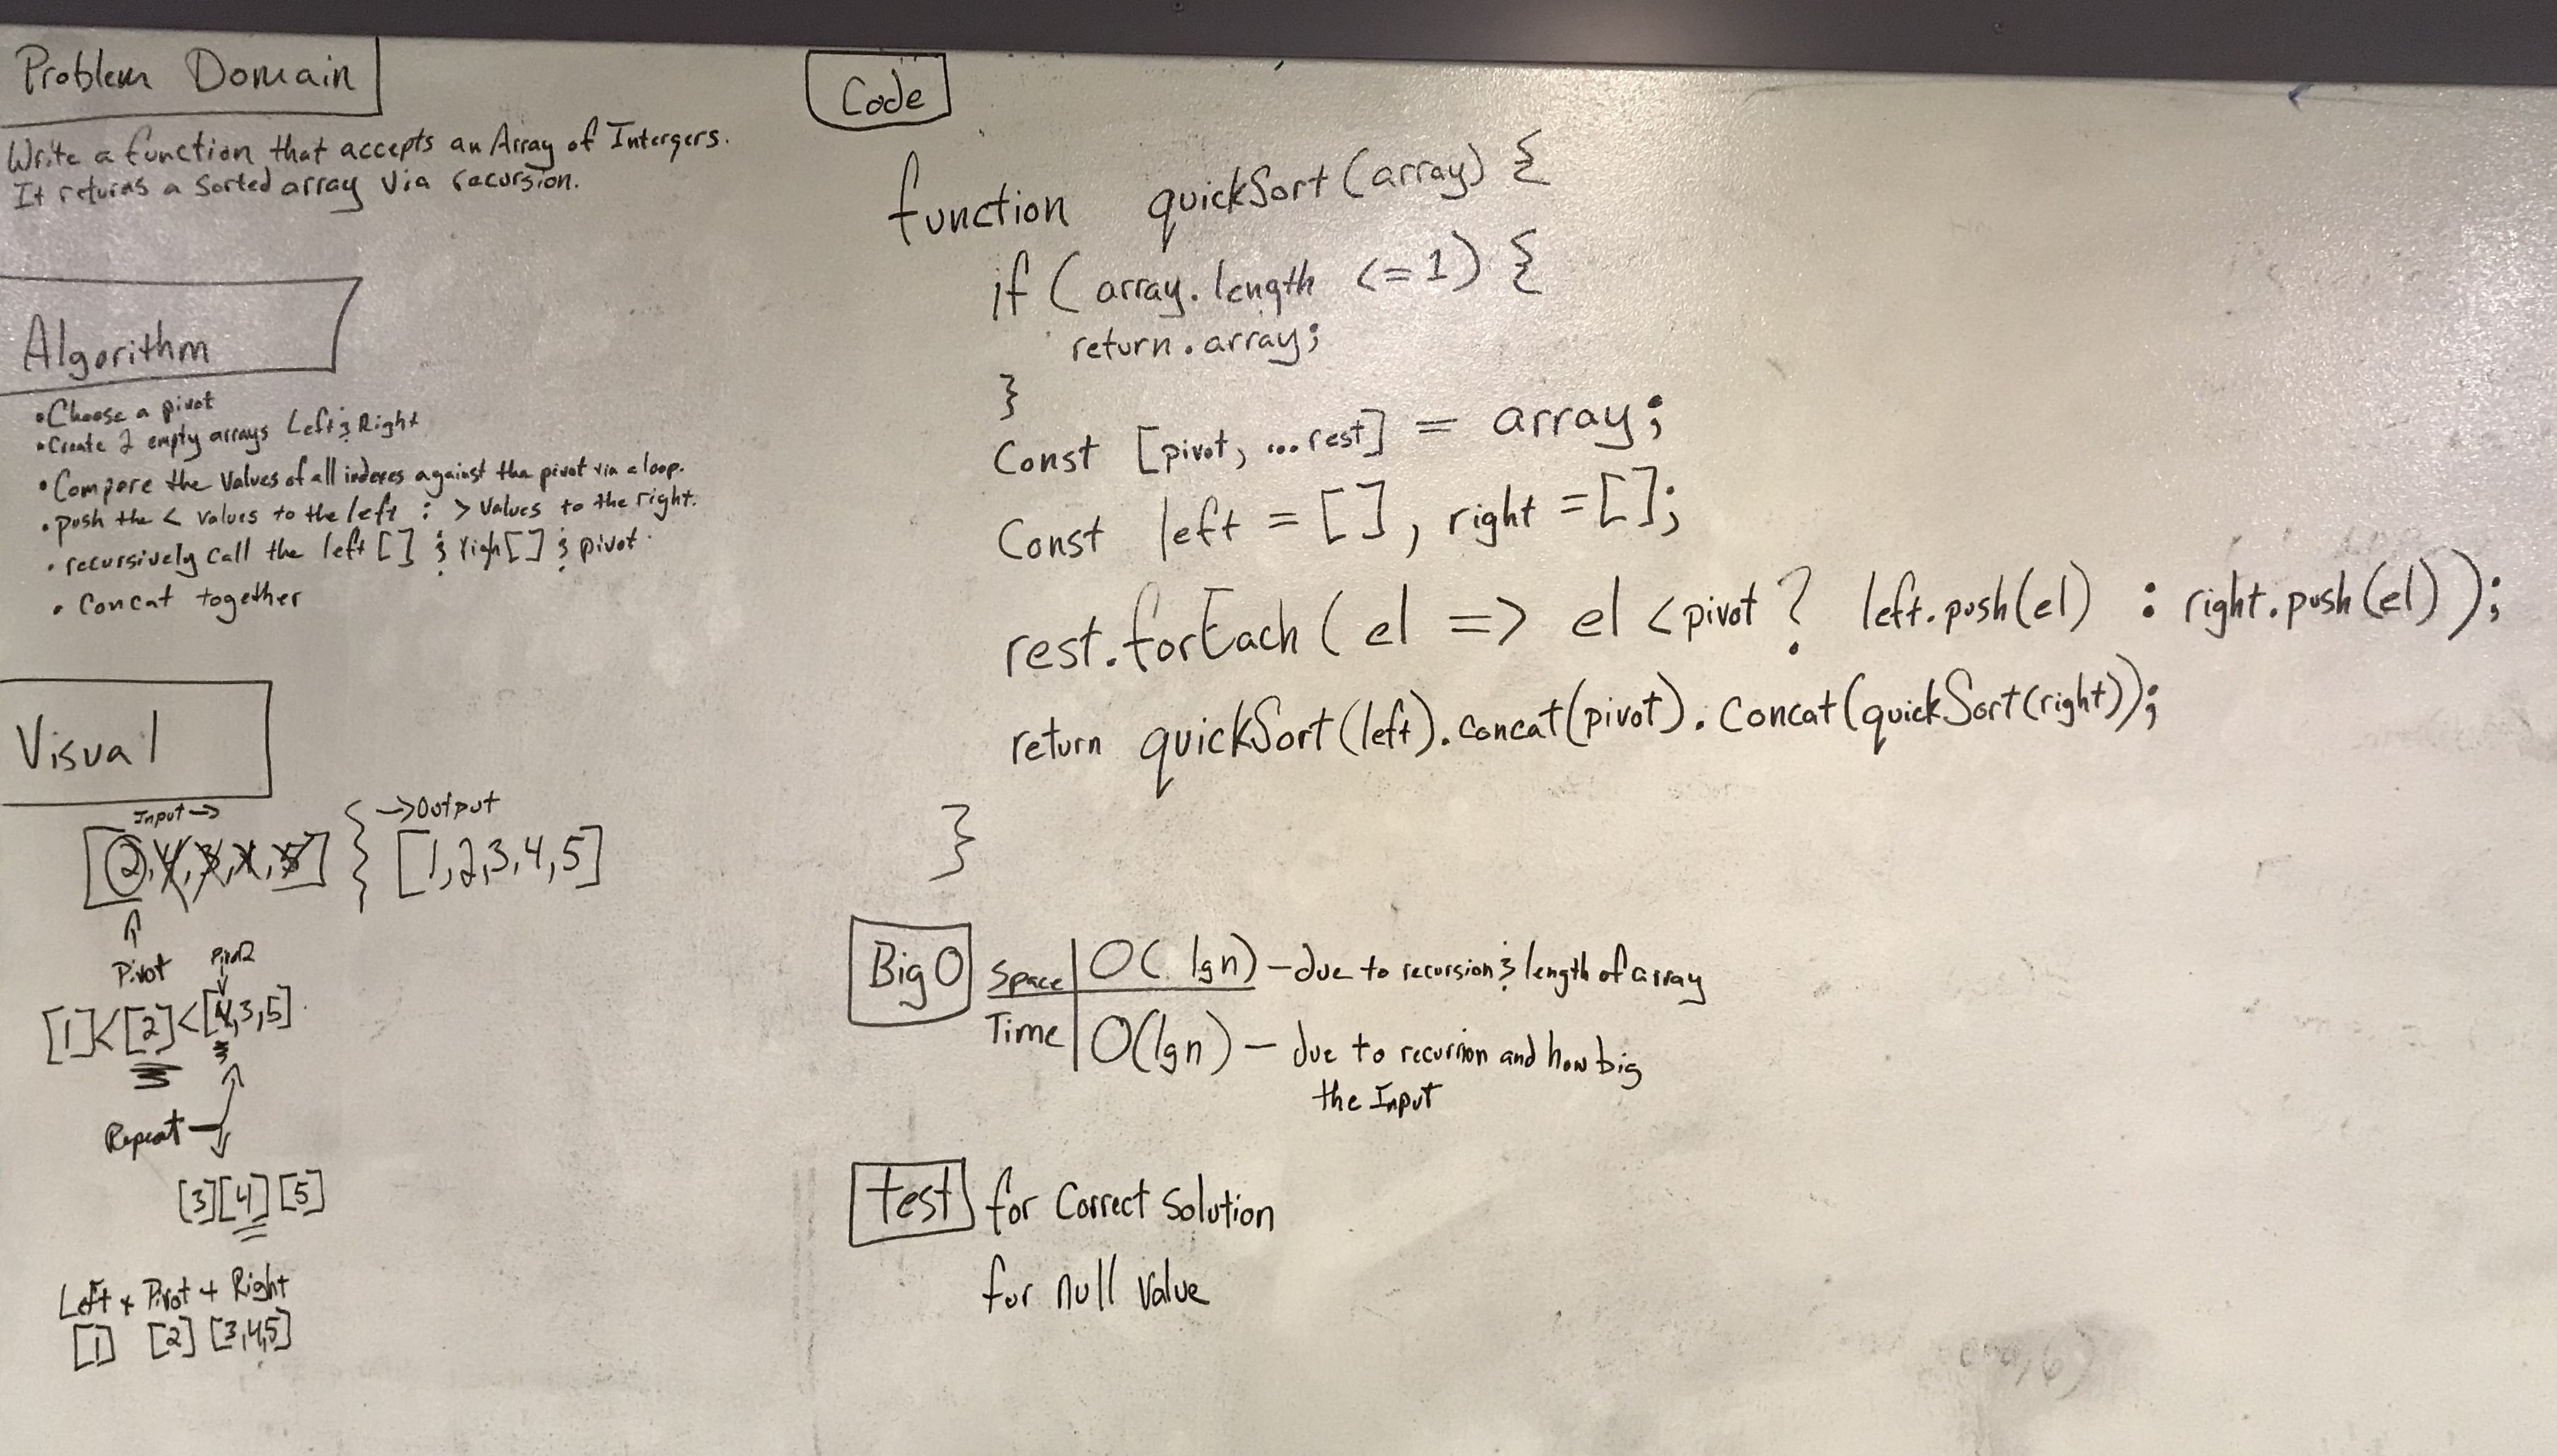 Problem Domain
Write a function that accepts an Array of Intergers.
It returns a Sorted array via recursion.
Algorithm
• Choose a pivot
• Create 2 empty arrays Left & Right
• Compare the Values of all indexes against the pivot via a loop.
• push the < values to the left : > values to the right.
• recursively call the left [] & righ[] & pivot.
• Concat together
Visual
Input →
→ Output
[2, 4, 3, 1, 5] } [1,2,3,4,5]
Pivot
Pivot2
[1]<[2]<[4,3,5]
Repeat
[3][4] [5]
Left + Pivot + Right
[1] [2] [3,4,5]
Code
function quickSort(array) {
if (array.length <= 1) {
return.array;
}
Const [pivot, ...rest] = array;
Const left = [], right = [];
rest.forEach( el => el < pivot ? left.push(el) : right.push(el));
return quickSort(left).concat(pivot).Concat(quickSort(right));
}
Big O
Space O( lgn) - due to recursion & length of array
Time O(lgn) - due to recurrion and how big
the Input
test for Correct Solution
for null Value